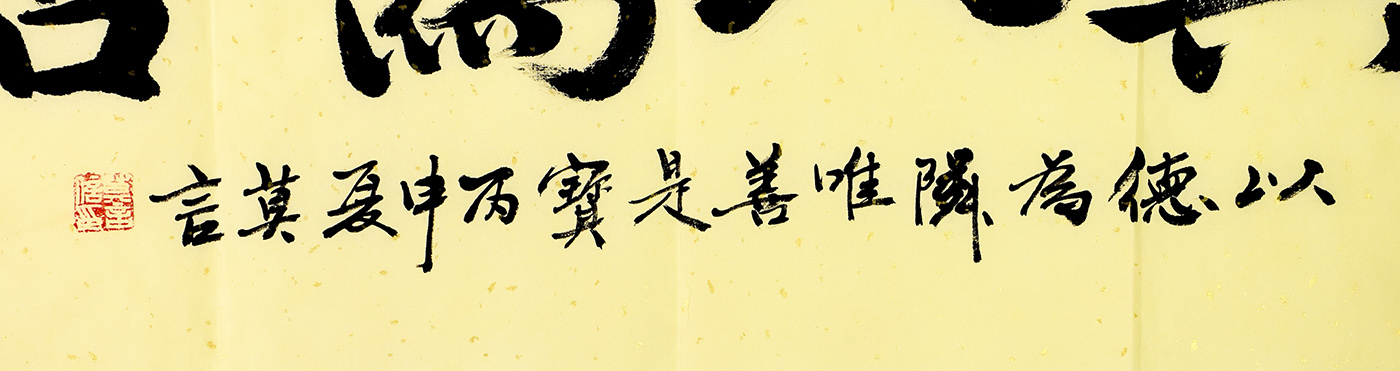 以德為隣唯善是寶丙申夏莫言